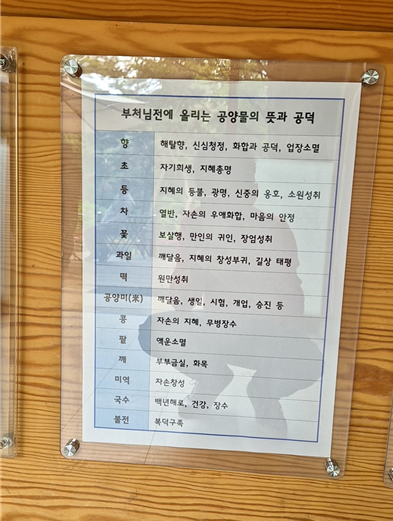 부처님전에 올리는 공양물의 뜻과 공덕
향 해탈향, 신심청정, 화합과 공덕, 업장소멸
초 자기희생, 지혜총명
등 지혜의 등불, 광명, 신중의 옹호, 소원성취
차 열반, 자손의 우애화합, 마음의 안정
꽃 보살행, 만인의 귀인, 장엄성취
과일 깨달음, 지혜의 창성부귀, 길상 태평
떡 원만성취
공양미(米) 깨달음, 생일, 시험, 개업, 승진 등
콩 자손의 지혜, 무병장수
팥 액운소멸
깨 부부금실, 화목
미역 자손창성
국수 백년해로, 건강, 장수
불전 복덕구족